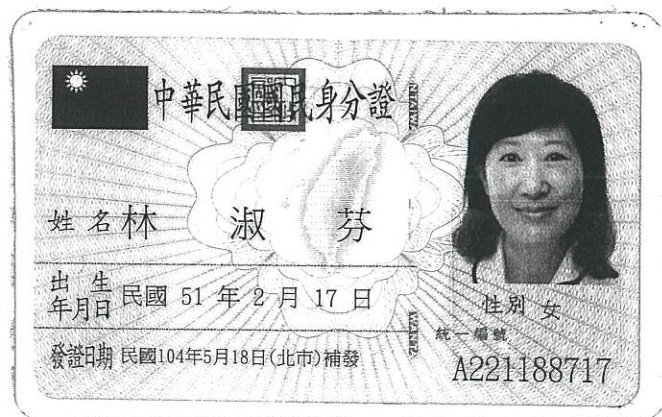 中華民國國民身分證
姓名 林 淑 芬
出生年月日 民國 51 年 2 月 17 日
性別 女
發證日期 民國104年5月18日(北市)補發
統一編號
A221188717